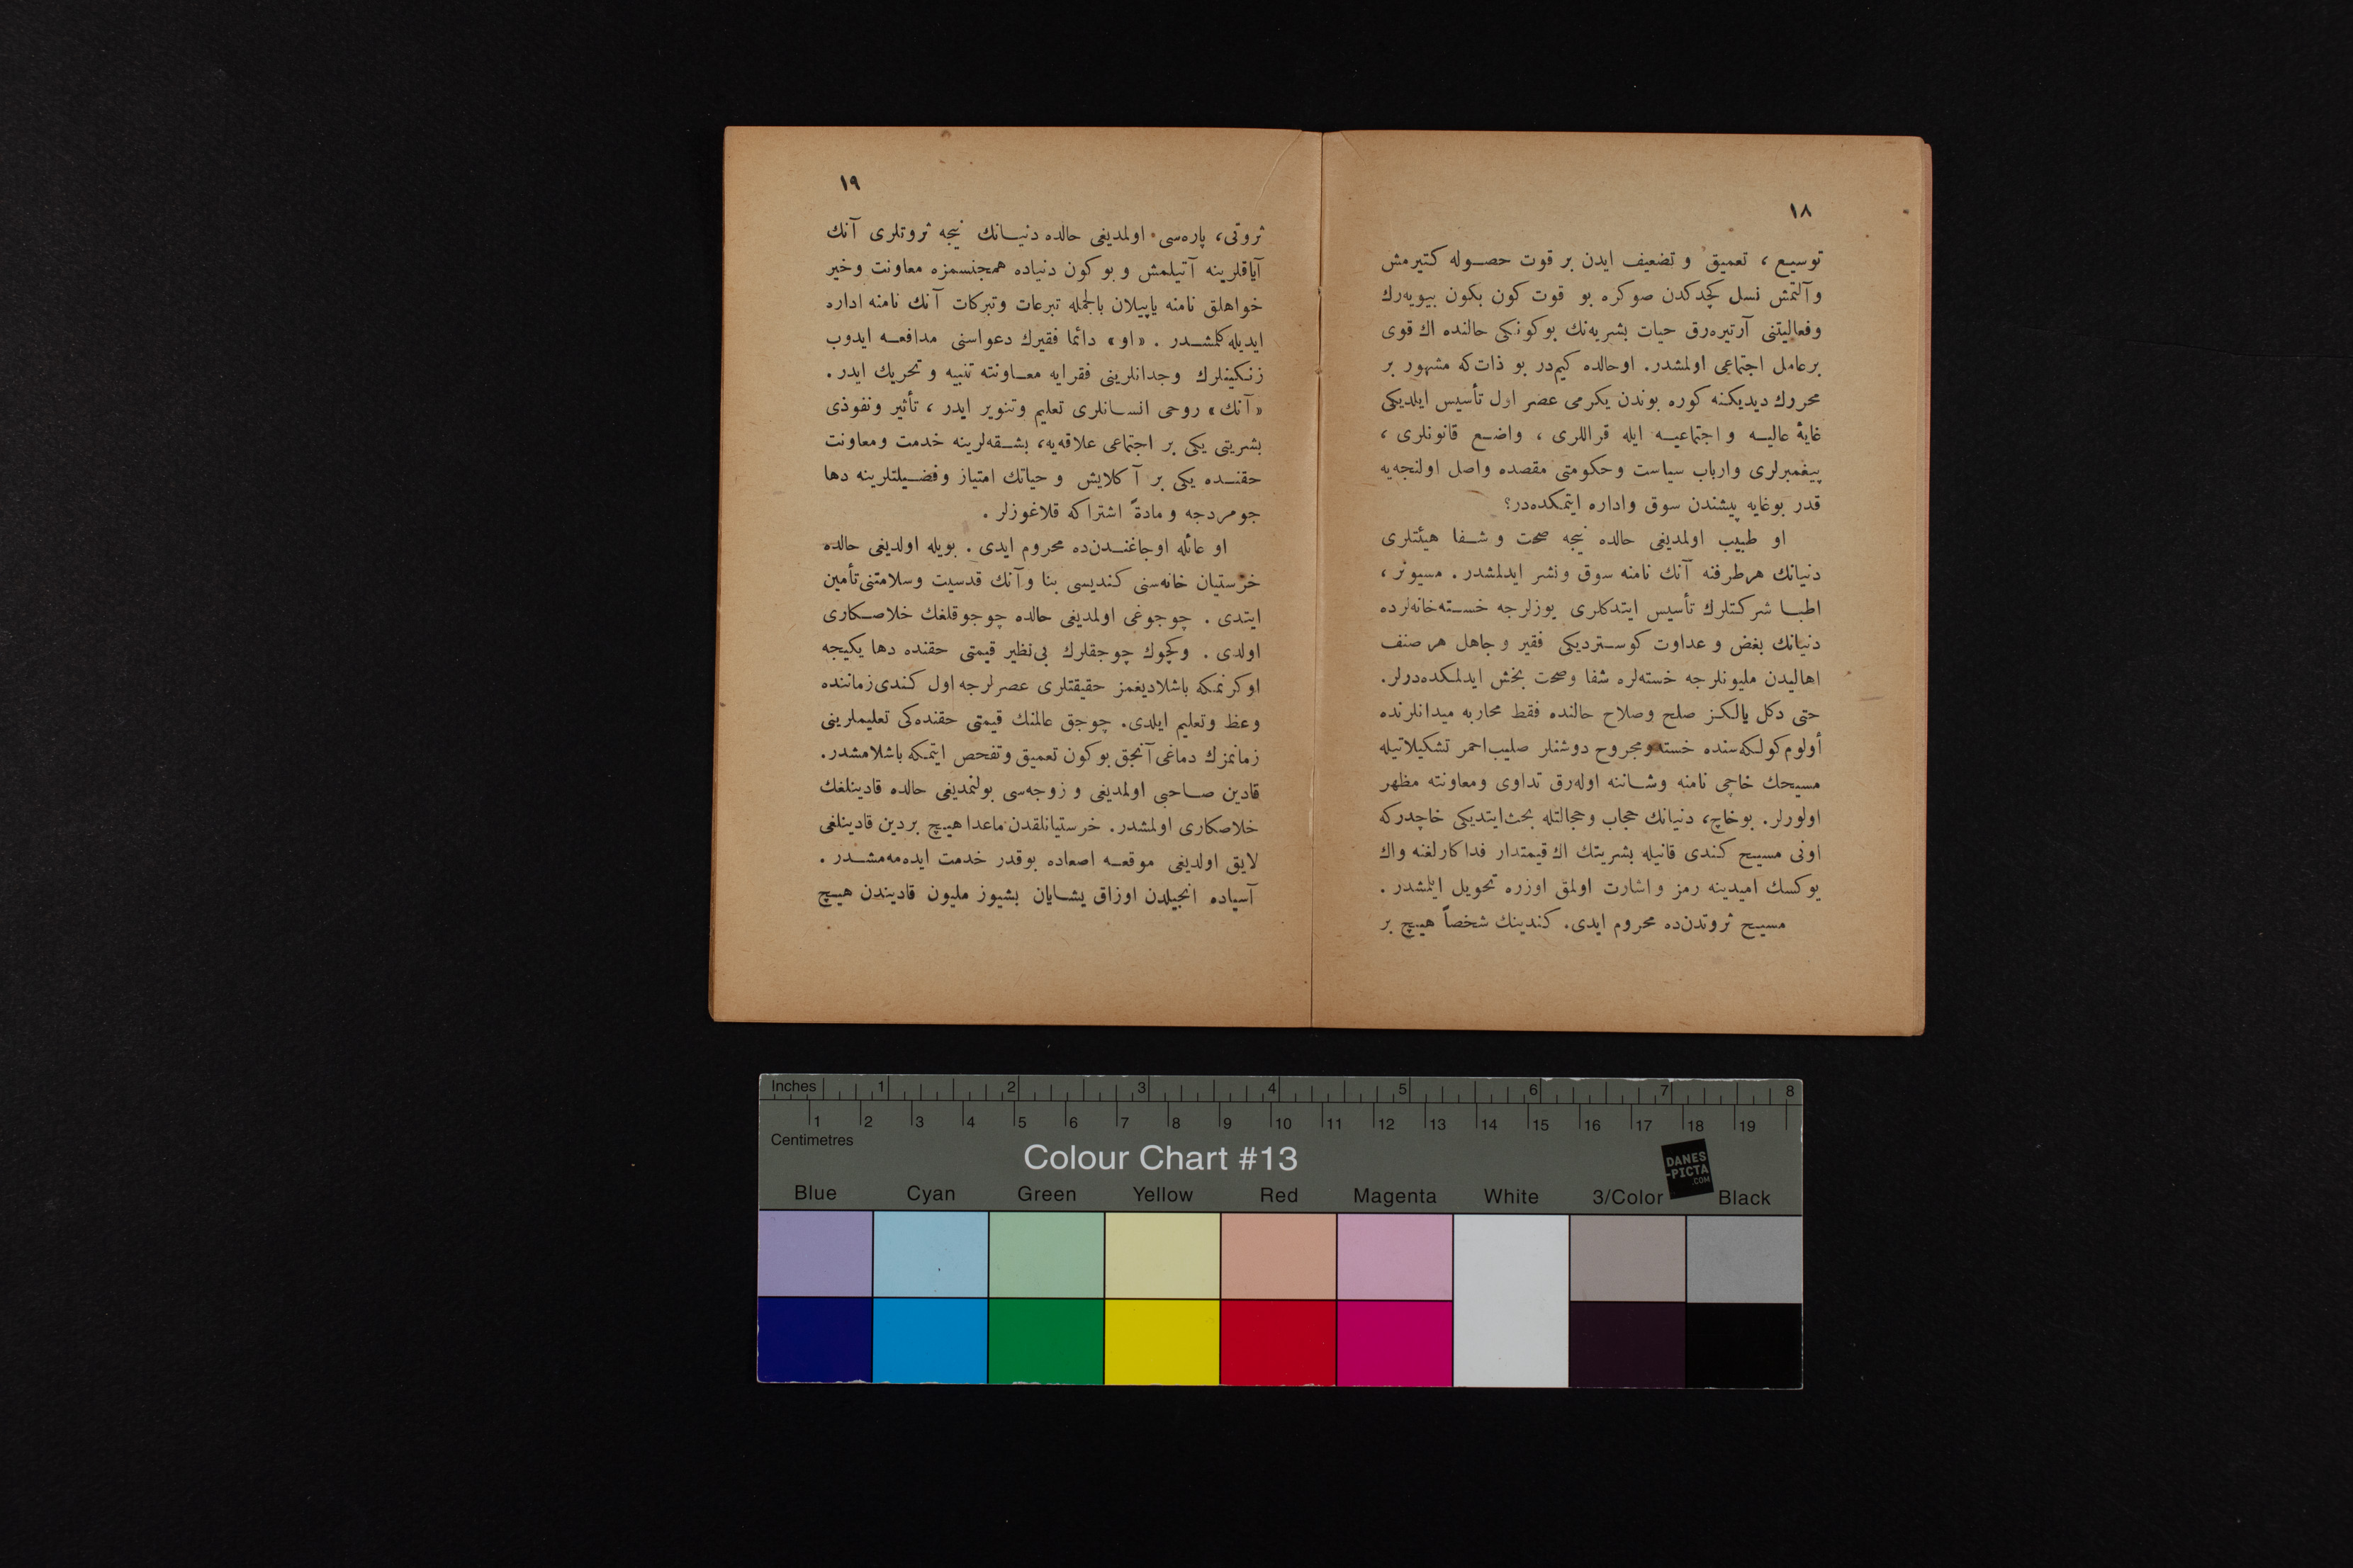 ١٨
توسيع ، تعميق و تضعيف ايدن بر قوت حصوله كتيرمش
وآلتمش نسل كچدكدن صوكره بو قوت كون بكون بيويه‌رك
وفعاليتنى آرتيره‌رق حيات بشريه‌نك بوكونكى حالنده اك قوى
برعامل اجتماعى اولمشدر. اوحالده كيم‌در بو ذات‌كه مشهور بر
محررك ديديكنه كوره بوندن يكرمى عصر اول تأسيس ايلديكى
غايۀ عاليه و اجتماعيه ايله قراللرى ، واضع قانونلرى ،
پيغمبرلرى وارباب سياست وحكومتى مقصده واصل اولنجه‌يه
قدر بوغايه پيشندن سوق واداره ايتمكده‌در؟
او طبيب اولمديغى حالده نيجه صحت و شفا هيئتلرى
دنيانك هرطرفنه آنك نامنه سوق ونشر ايدلمشدر . مسيونر ،
اطبا شركتلرك تأسيس ايتدكلرى يوزلرجه خسته‌خانه‌لرده
دنيانك بغض و عداوت كوستردیكى فقير و جاهل هر صنف
اهاليدن مليونلرجه خسته‌لره شفا وصحت بخش ايدلمكده‌درلر.
حتى دكل يالكز صلح وصلاح حالنده فقط محاربه ميدانلرنده
أولوم كولكه‌سنده خسته ومجروح دوشنلر صليب‌احمر تشكيلاتيله
مسيحك خاچى نامنه وشاننه اوله‌رق تداوى ومعاونته مظهر
اولورلر. بوخاچ، دنيانك حجاب وحجالتله بحث‌ايتديكى خاچدركه
اونى مسيح كندى قانيله بشريتك اك قيمتدار فداكارلغنه واك
يوكسك اميدينه رمز واشارت اولمق اوزره تحويل ايتمشدر .
مسيح ثروتدن‌ده محروم ايدى. كندينك شخصاً هيچ بر
١٩
ثروتى، پاره‌سى اولمديغى حالده دنيانك نيجه ثروتلرى آنك
آياقلرينه آتيلمش و بوكون دنياده همجنسمزه معاونت وخير
خواهلق نامنه ياپيلان بالجمله تبرعات وتبركات آنك نامنه اداره
ايديله‌كلمشدر . «او» دائما فقيرك دعواسنى مدافعه ايدوب
زنكينلرك وجدانلرينى فقرايه معاونته تنبيه و تحريك ايدر.
«آنك» روحى انسانلرى تعليم وتنوير ايدر ، تأثير ونفوذى
بشريتى يكى بر اجتماعى علاقه‌يه، بشقه‌لرينه خدمت ومعاونت
حقنده يكى بر آكلايش و حياتك امتياز وفضيلتلرينه دها
جومردجه و مادةً اشتراكه قلاغوزلر .
او عائله اوجاغندن‌ده محروم ايدى . بويله اولديغى حالده
خرستيان خانه‌سنى كنديسى بنا وآنك قدسيت وسلامتنى‌تأمين
ايتدى . چوجوغى اولمديغى حالده چوجوقلغك خلاصكارى
اولدى . وكچوك چوجقلرك بى‌نظير قيمتى حقنده دها يكيجه
اوكرنمكه باشلاديغمز حقيقتلرى عصرلرجه اول كندى‌زماننده
وعظ وتعليم ايلدى. چوجق عالمنك قيمتى حقنده‌كى تعليملرينى
زمانمزك دماغى آنجق بوكون تعميق وتفحص ايتمكه باشلامشدر.
قادين صاحبى اولمديغى و زوجه‌سى بولنمديغى حالده قادينلغك
خلاصكارى اولمشدر. خرستيانلقدن ماعدا هيچ بردين قادينلغى
لايق اولديغى موقعه اصعاده بوقدر خدمت ايده‌مه‌مشدر .
آسياده انجيلدن اوزاق يشايان بشيوز مليون قاديندن هيچ
Inches 1 2 3 4 5 6 7 8
1 2 3 4 5 6 7 8 9 10 11 12 13 14 15 16 17 18 19
Centimetres
Colour Chart #13
DANES
-PICTA
.COM
Blue Cyan Green Yellow Red Magenta White 3/Color Black